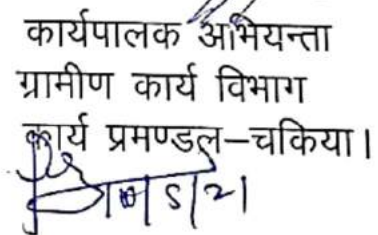 कार्यपालक अभियन्ता
ग्रामीण कार्य विभाग
कार्य प्रमण्डल–चकिया।